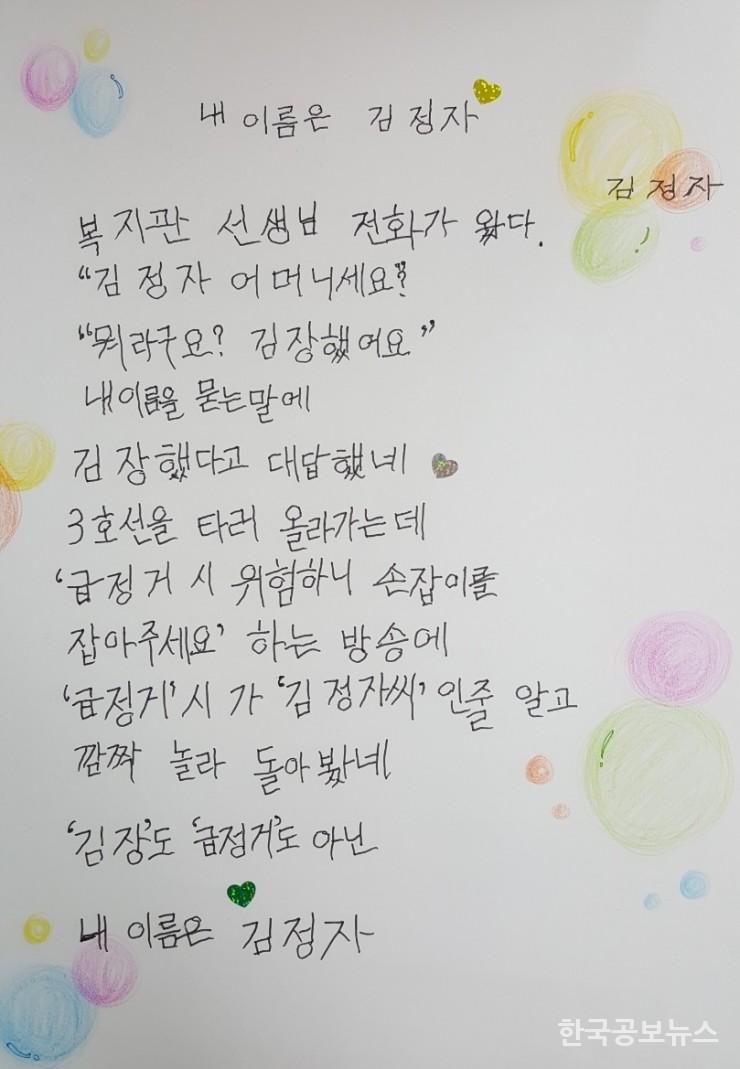 내 이름은 김정자
김정자
복지관 선생님 전화가 왔다.
“김정자 어머니세요?”
“뭐라구요? 김장했어요”
내이름을 묻는말에
김장했다고 대답했네
3호선을 타러 올라가는데
‘급정거 시 위험하니 손잡이를
잡아주세요’ 하는 방송에
‘급정거’시 가 ‘김정자씨’ 인줄 알고
깜짝 놀라 돌아봤네
‘김장’도 ‘급정거’도 아닌
내 이름은 김정자
한국공보뉴스